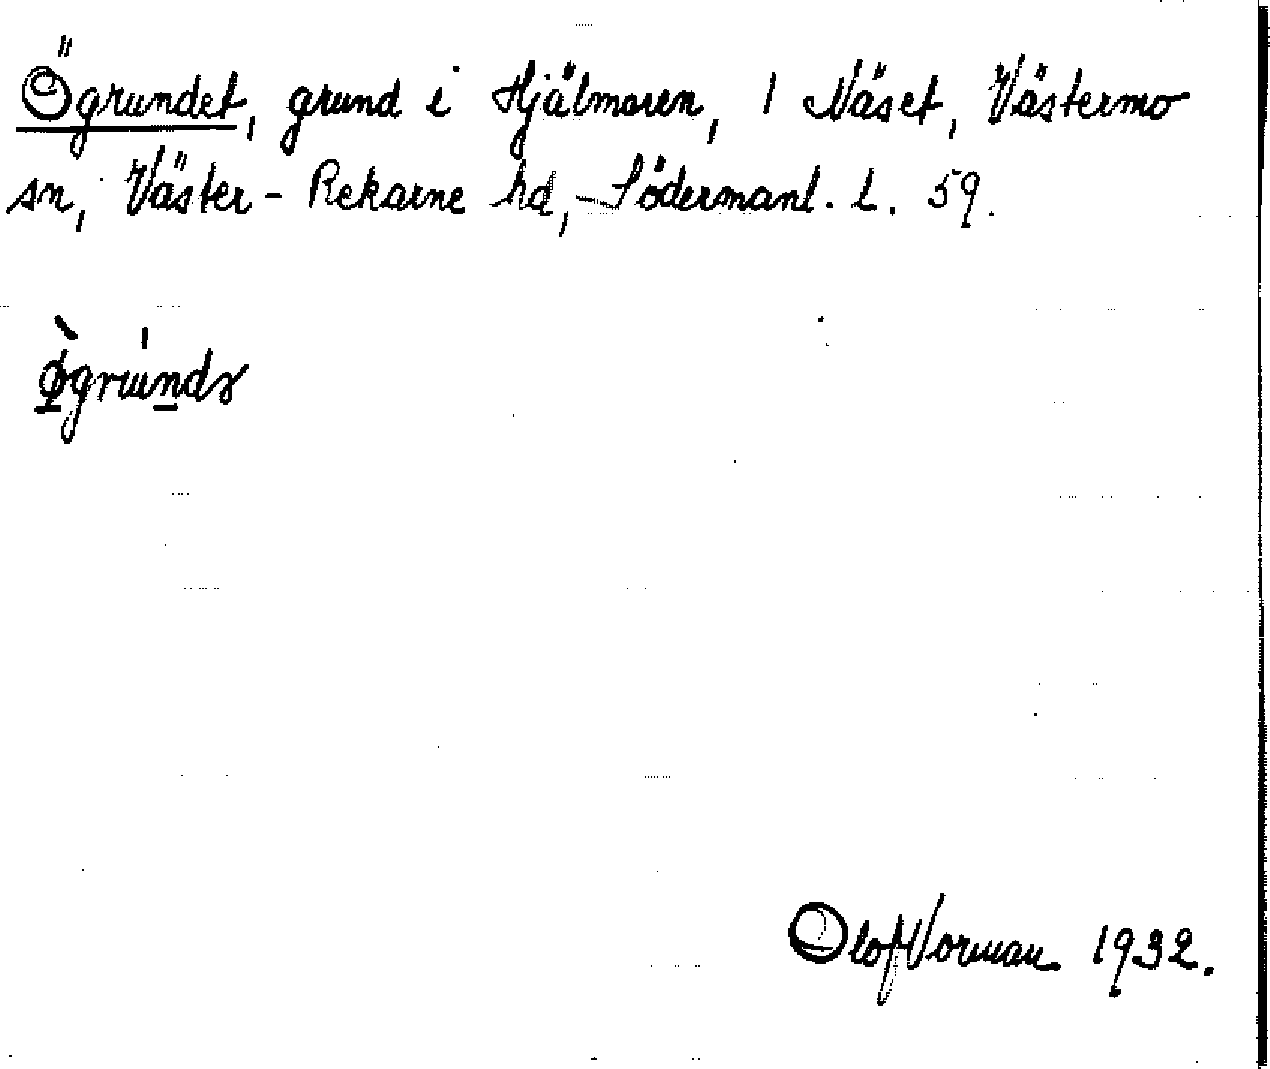 Ögrundet, grund i Hjälmaren, 1 Näset, Västermo
sn, Väster-Rekarne hd, Södermanl. l. 59.
Olof Vorman 1932.